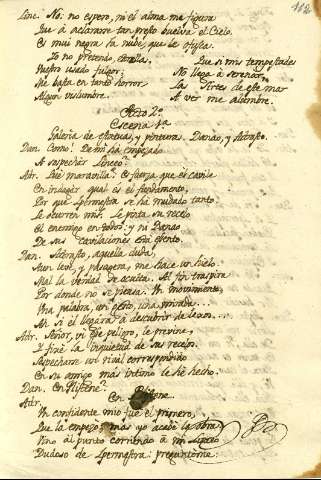 102
Line. No: no espero, ni el alma me figura
Que à aclararse tan presto buelva el Cielo.
Es mui negra la nube, que le ofusca.
Yo no pretendo, estrella,
Vuestro usado fulgor;
Me basta en tanto horror
Algun vislumbre.
Que si mi tempestade
No llega à serenar,
La Sirtes de este mar
A ver me alumbre.
Acto 2º
Escena 1ª
Galeria de estatuas, y pinturas. Danao, y Adrasto.
Dan. Como! De mi ha empezado
A sospechar Linceo?
Adr. Què maravilla? Es fuerza que èl cavile
En indagar qual es el fundamento,
Por que Ipermestra se ha mudado tanto.
Le ocurren mil. Le pinta su recelo
El enemigo en todos: y ni Danao
De sus cavilaciones està esento.
Dan. Adrasto, aquella duda,
Aun leve, y pasagera, me hace un hielo.
Mal la verdad se oculta. Al fin traspira
Por donde no se piensa. Un movimiento,
Una palabra, un gesto, una mirada...
Ah si èl llegara à descubrir
Adr. Señor, vi el peligro, le previne,
I fixè la inquietud de su recelo.
Sospechare un rival correspondido
En su amigo mas intimo le he hecho.
Dan. En Plistene?
Adr. En Plistene.
Un confidente mio fue el primero,
Que la empezò, mas yo acabè la obra.
Vino al punto corriendo à mi Linceo
Dudoso de Ipermestra: preguntòme